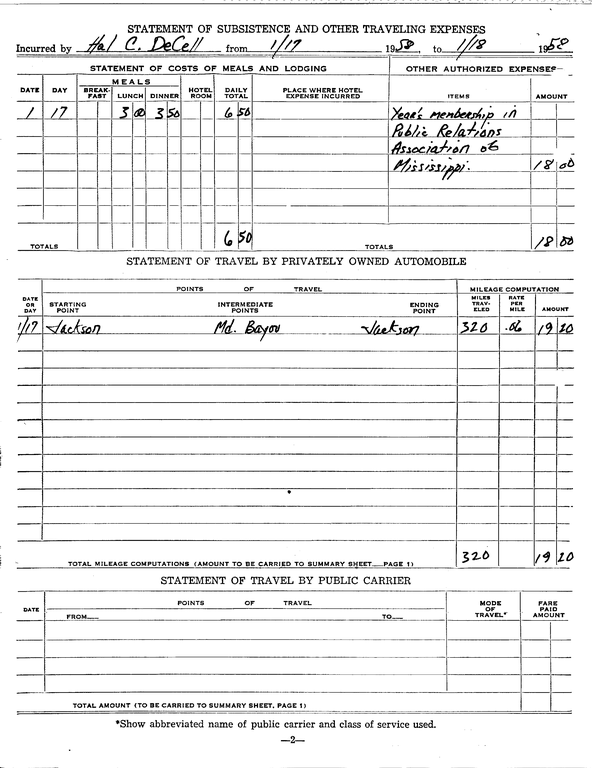 STATEMENT OF SUBSISTENCE AND OTHER TRAVELING EXPENSES
Incurred by Hal C. DeCell from 1/17 1958, to 1/18 1958
STATEMENT OF COSTS OF MEALS AND LODGING OTHER AUTHORIZED EXPENSES
DATE DAY MEALS BREAK-FAST LUNCH DINNER HOTEL ROOM DAILY TOTAL PLACE WHERE HOTEL EXPENSE INCURRED ITEMS AMOUNT
1 17 3 00 3 50 6 50 Year's membership in
Public Relations
Association of
Mississippi. 18 00
TOTALS 6 50 TOTALS 18 00
STATEMENT OF TRAVEL BY PRIVATELY OWNED AUTOMOBILE
POINTS OF TRAVEL MILEAGE COMPUTATION
DATE OR DAY STARTING POINT INTERMEDIATE POINTS ENDING POINT MILES TRAV-ELED RATE PER MILE AMOUNT
1/17 Jackson Md. Bayou Jackson 320 .06 19 20
TOTAL MILEAGE COMPUTATIONS (AMOUNT TO BE CARRIED TO SUMMARY SHEET PAGE 1) 320 19 20
STATEMENT OF TRAVEL BY PUBLIC CARRIER
DATE POINTS OF TRAVEL MODE OF TRAVEL* FARE PAID AMOUNT
FROM TO
TOTAL AMOUNT (TO BE CARRIED TO SUMMARY SHEET, PAGE 1)
*Show abbreviated name of public carrier and class of service used.
—2—